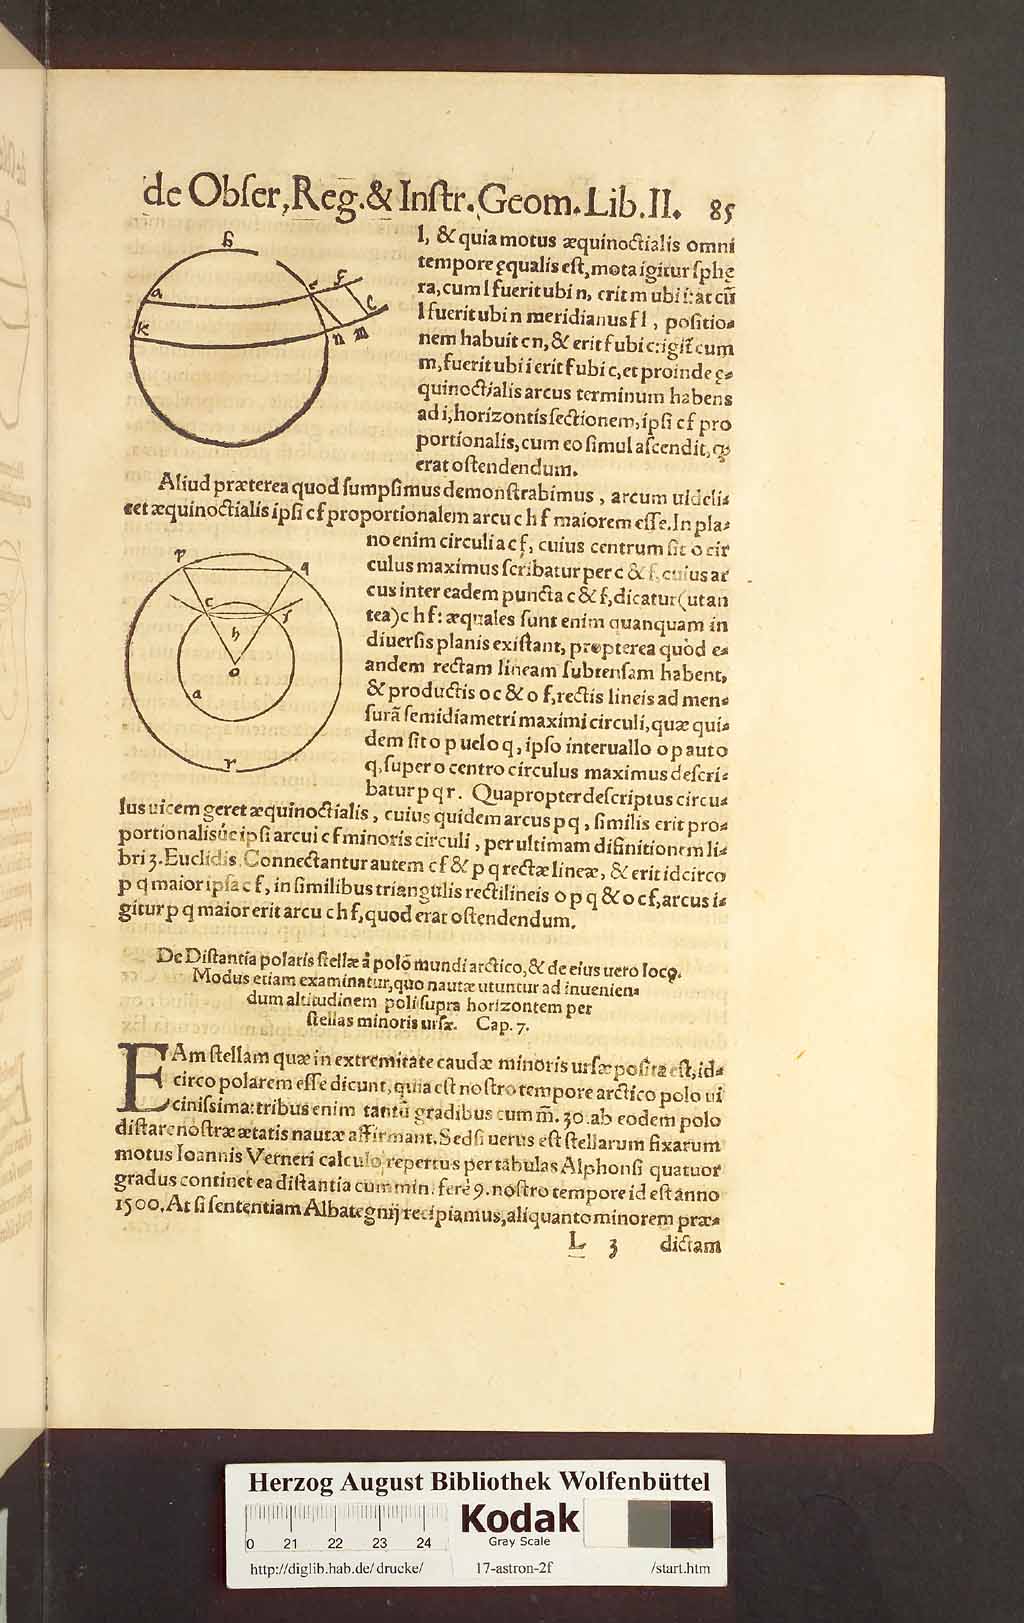 de Obſer, Reg. & Inſtr. Geom. Lib. II. 85
l, & quia motus æquinoctialis omni
tempore ęqualis eſt, mota igitur ſphę
ra, cum l fuerit ubi n, erit m ubi i: at cũ
l fuerit ubi n meridianus f l, poſitio-
nem habuit c n, & erit f ubi c: igit̃ cum
m, fuerit ubi i erit f ubi c, et proinde ę-
quinoctialis arcus terminum habens
ad i, horizontis ſectionem, ipſi c f pro
portionalis, cum eo ſimul aſcendit, ꝙ
erat oſtendendum.
Aliud præterea quod ſumpſimus demonſtrabimus, arcum uideli-
cet æquinoctialis ipſi c f proportionalem arcu c h f maiorem eſſe. In pla-
no enim circuli a c f, cuius centrum ſit o cir
culus maximus ſcribatur per c & f, cuius ar
cus inter eadem puncta c & f, dicatur (ut an
tea) c h f: æquales ſunt enim quanquam in
diuerſis planis exiſtant, propterea quòd e-
andem rectam lineam ſubtenſam habent,
& productis o c & o f, rectis lineis ad men-
ſurã ſemidiametri maximi circuli, quæ qui-
dem ſit o p uel o q, ipſo interuallo o p aut o
q, ſuper o centro circulus maximus deſcri-
batur p q r. Quapropter deſcriptus circu-
lus uicem geret æquinoctialis, cuius quidem arcus p q, ſimilis erit pro-
portionalisúe ipſi arcui c f minoris circuli, per ultimam difinitionem li-
bri 3. Euclidis. Connectantur autem c f & p q rectæ lineæ, & erit idcirco
p q maior ipſa c f, in ſimilibus triangulis rectilineis o p q & o c f, arcus i-
gitur p q maior erit arcu c h f, quod erat oſtendendum.
De Diſtantia polaris ſtellæ â polo mundi arctico, & de eius uero loco.
Modus etiam examinatur, quo nautæ utuntur ad inuenien-
dum altitudinem poli ſupra horizontem per
ſtellas minoris urſæ. Cap. 7.
EAm ſtellam quæ in extremitate caudæ minoris urſæ poſita eſt, id-
circo polarem eſſe dicunt, quia eſt noſtro tempore arctico polo ui
ciniſsima: tribus enim tantũ gradibus cum m̃. 30. ab eodem polo
diſtare noſtræ ætatis nautæ affirmant. Sed ſi uerus eſt ſtellarum fixarum
motus Ioannis Verneri calculo repertus per tabulas Alphonſi quatuor
gradus continet ea diſtantia cum min. ferè 9. noſtro tempore id eſt anno
1500. At ſi ſententiam Albategnij recipiamus, aliquanto minorem præ-
L 3 dictam
b
a
c
f
k
l
n
m
p
q
c
f
h
o
a
r
Herzog August Bibliothek Wolfenbüttel
0 21 22 23 24
Kodak
Gray Scale
http://diglib.hab.de/drucke/ 17-astron-2f /start.htm